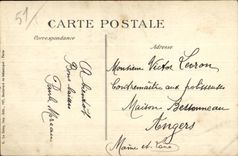 51
CARTE POSTALE
Correspondance
Adresse
A bientôt
Bons baisers
Paul Moreau
Monsieur Victor Leiron
Contremaître aux polisseuses
Maison Bessonneau
Angers
Maine et Loire